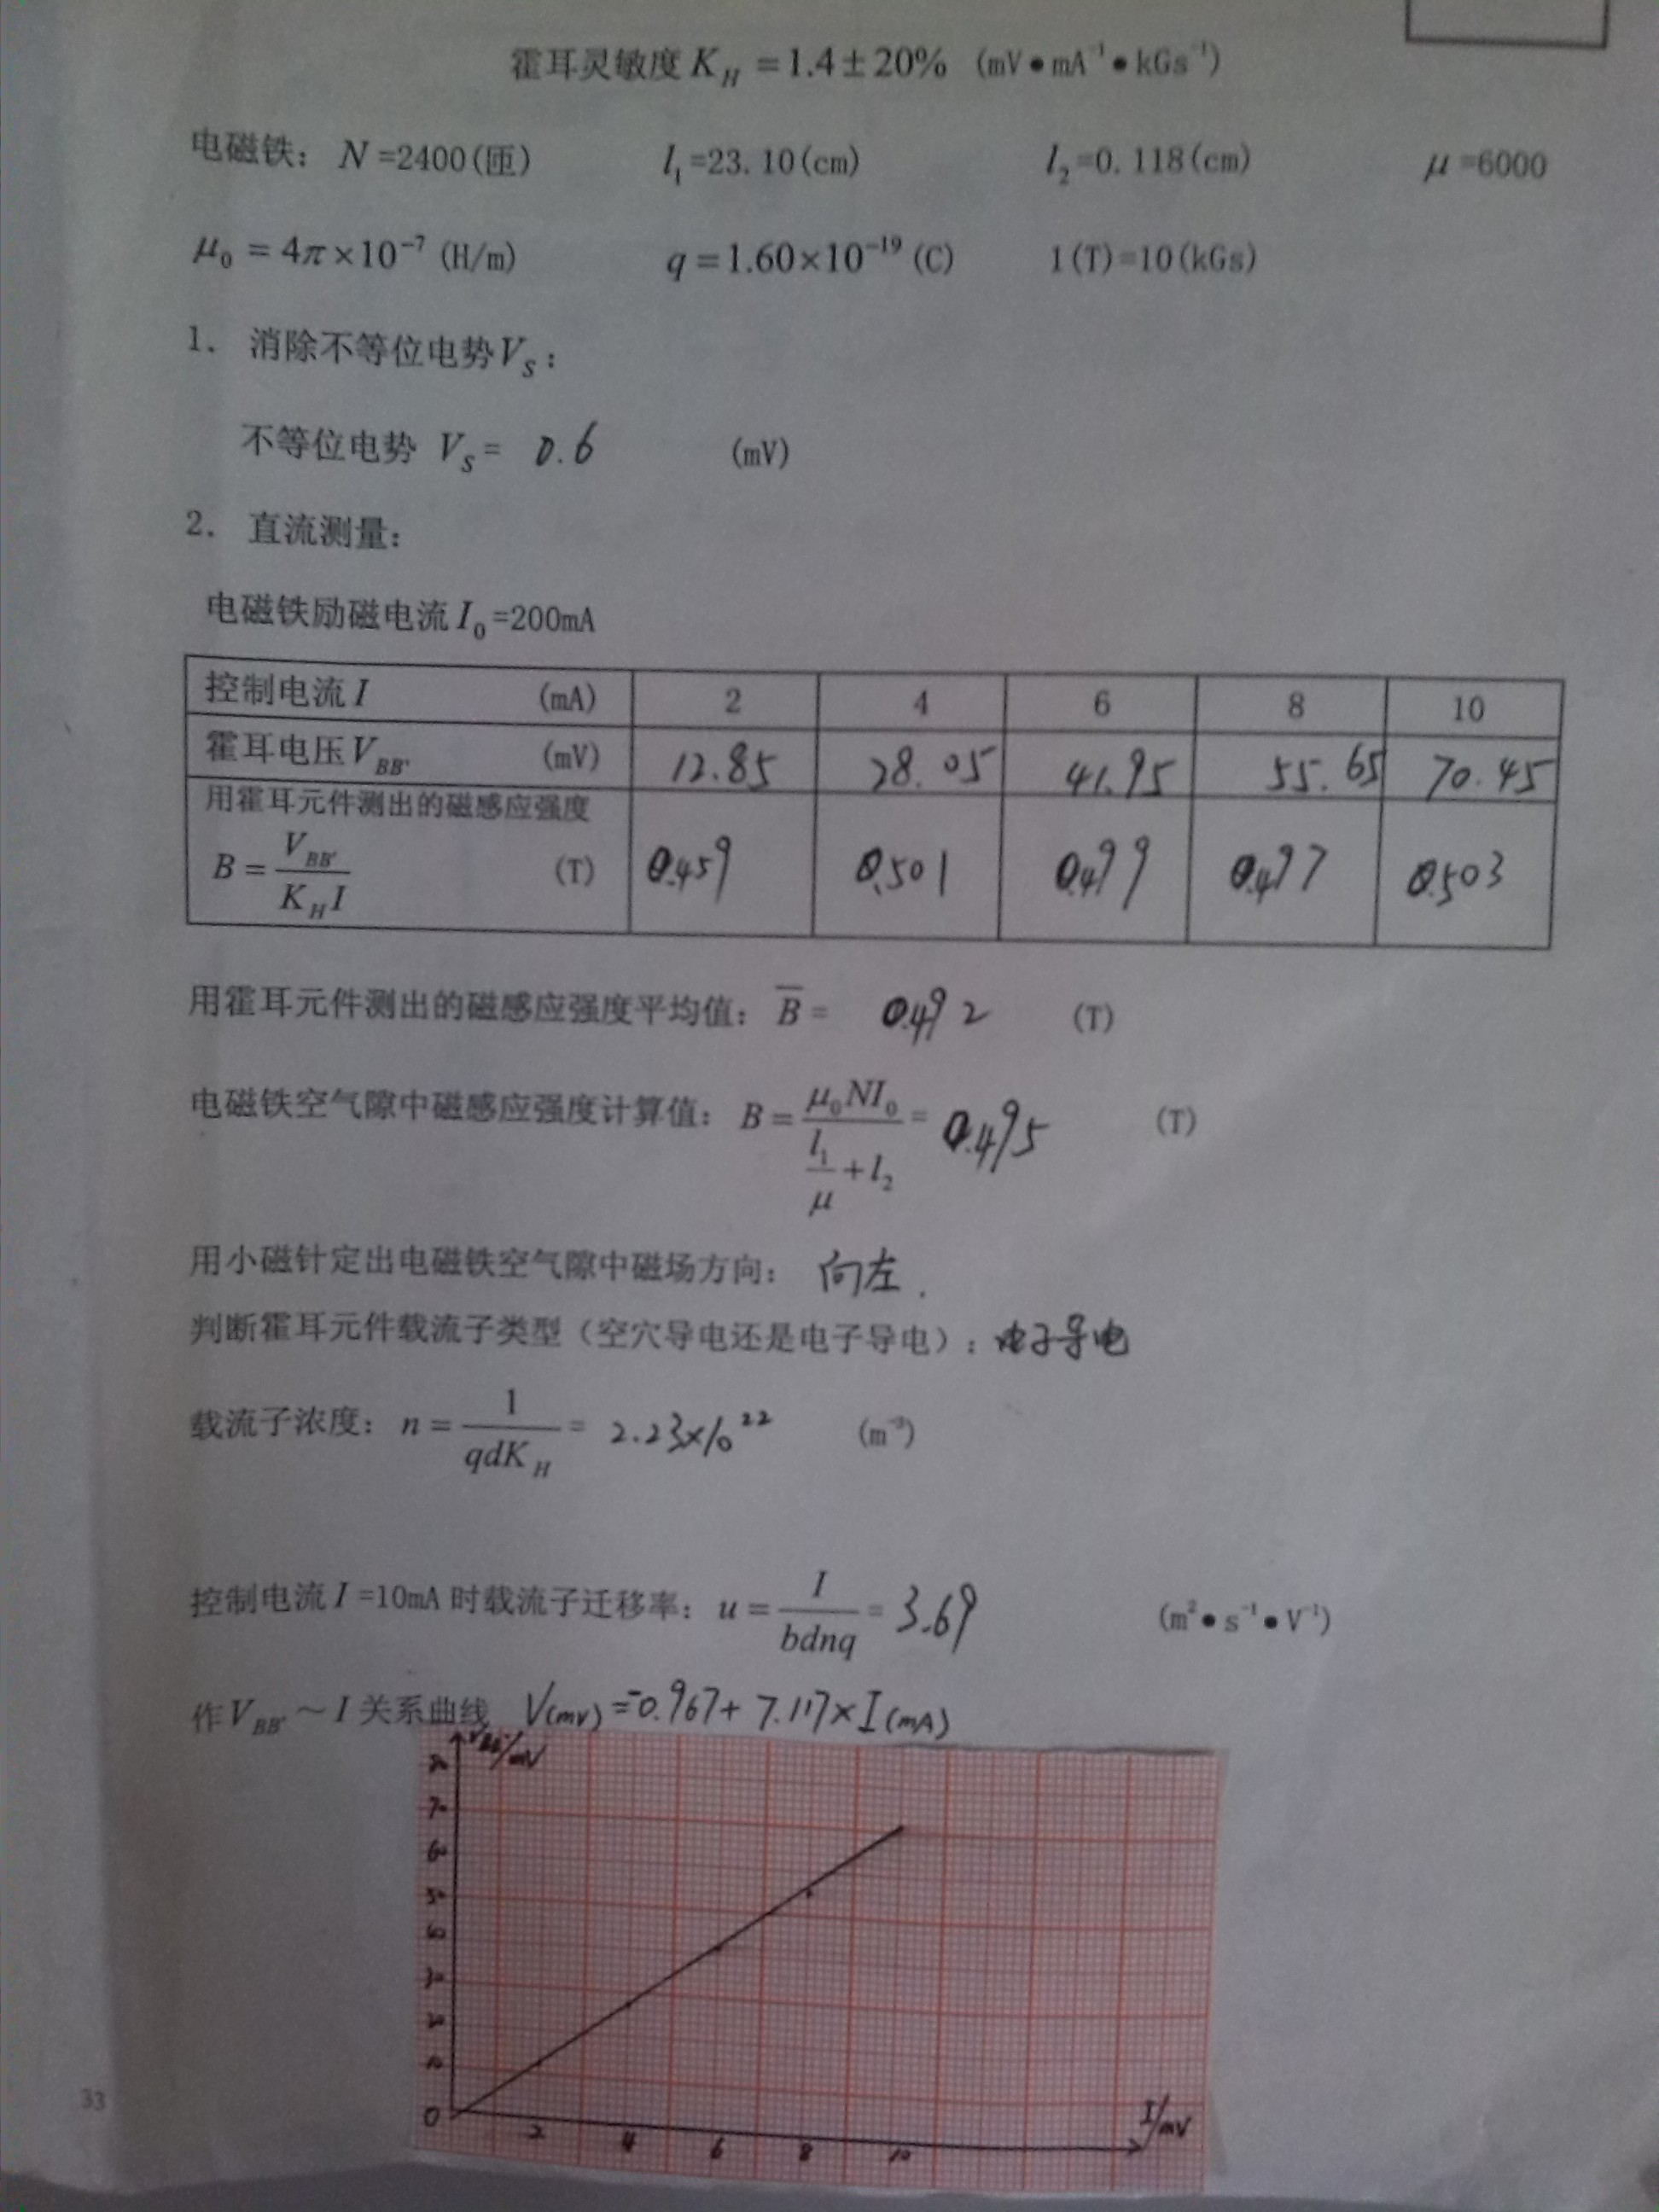 霍耳灵敏度 K_H = 1.4±20% (mV•mA⁻¹•kGs⁻¹)
电磁铁: N=2400(匝) l₁=23.10(cm) l₂=0.118(cm) μ=6000
μ₀ = 4π×10⁻⁷ (H/m) q = 1.60×10⁻¹⁹ (C) 1(T)=10(kGs)
1. 消除不等位电势V_S:
不等位电势 V_S = 0.6 (mV)
2. 直流测量:
电磁铁励磁电流 I₀=200mA
控制电流 I (mA) 2 4 6 8 10
霍耳电压 V_BB' (mV) 12.85 28.05 41.95 55.65 70.45
用霍耳元件测出的磁感应强度
B = V_BB' / K_H I (T) 0.459 0.501 0.499 0.497 0.503
用霍耳元件测出的磁感应强度平均值: B̅ = 0.492 (T)
电磁铁空气隙中磁感应强度计算值: B = μ₀NI₀ / (l₁/μ + l₂) = 0.495 (T)
用小磁针定出电磁铁空气隙中磁场方向: 向左.
判断霍耳元件载流子类型(空穴导电还是电子导电): 电子导电
载流子浓度: n = 1 / qdK_H = 2.23×10²² (m⁻³)
控制电流 I=10mA 时载流子迁移率: u = I / bdnq = 3.69 (m²•s⁻¹•V⁻¹)
作 V_BB' ~ I 关系曲线 V(mV) = -0.967 + 7.117 × I(mA)
V_BB'/mV
80
70
60
50
40
30
20
10
0 2 4 6 8 10 I/mV
33